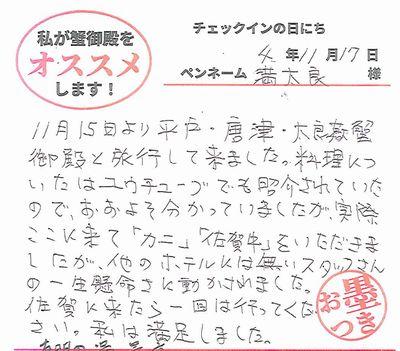 私が蟹御殿を
オススメ
します!
チェックインの日にち
4 年 11 月 17 日
ペンネーム 満太良 様
11月15日より平戸・唐津・太良嶽蟹
御殿と旅行して来ました。料理につ
いたはユウチューブでも昭介されていた
ので、おおよそ分かっていましたが、実際
ここに来て「カニ」「佐賀牛」をいただきま
したが、他のホテルには無いスタッフさん
の一生懸命さに動かされました。
佐賀に来たら一回は行ってくだ
さい。私は満足しました。
お墨つき